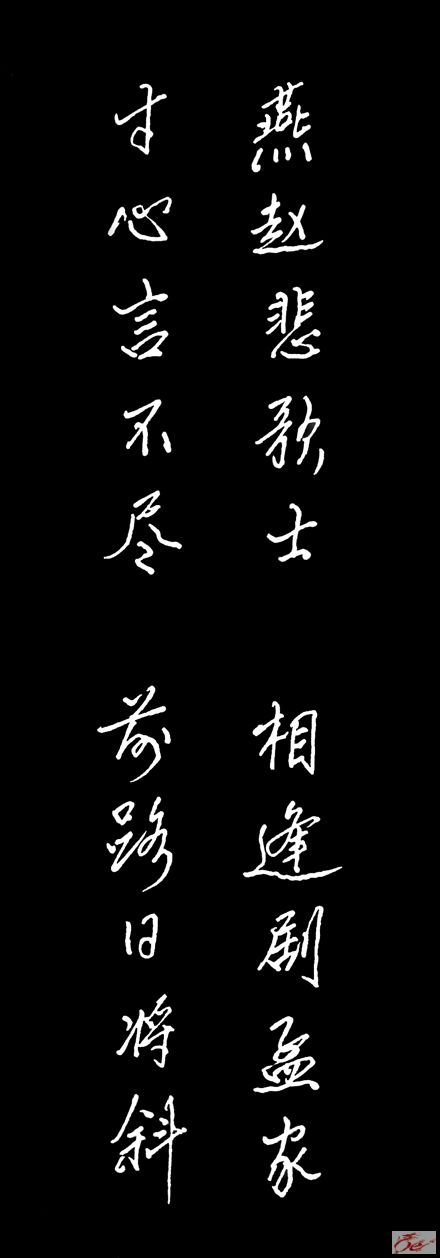 燕赵悲歌士 相逢剧孟家
寸心言不尽 前路日将斜